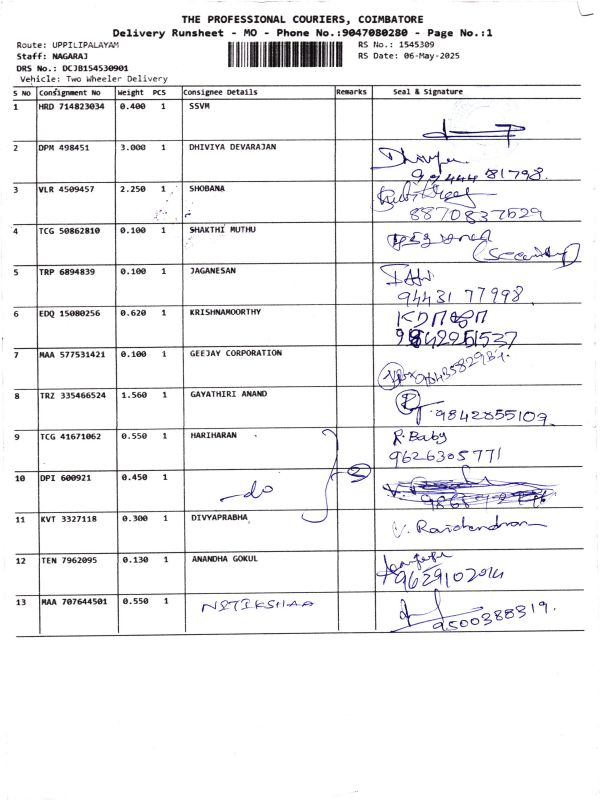 THE PROFESSIONAL COURIERS, COIMBATORE
Delivery Runsheet - MO - Phone No.:9047080280 - Page No.:1
Route: UPPILIPALAYAM
RS No.: 1545309
Staff: NAGARAJ
RS Date: 06-May-2025
DRS No.: DCJB154530901
Vehicle: Two Wheeler Delivery
S No Consignment No Weight PCS Consignee Details Remarks Seal & Signature
1 HRD 714823034 0.400 1 SSVM
2 DPM 498451 3.000 1 DHIVIYA DEVARAJAN
99444 81798.
3 VLR 4509457 2.250 1 SHOBANA
8870837529
4 TCG 50862810 0.100 1 SHAKTHI MUTHU
(Security)
5 TRP 6894839 0.100 1 JAGANESAN
94431 77998
6 EDQ 15080256 0.620 1 KRISHNAMOORTHY
7 MAA 577531421 0.100 1 GEEJAY CORPORATION
8 TRZ 335466524 1.560 1 GAYATHIRI ANAND
9842855109
9 TCG 41671062 0.550 1 HARIHARAN R. Baby
9626305771
10 DPI 600921 0.450 1 -do
11 KVT 3327118 0.300 1 DIVYAPRABHA V. Rajendran
12 TEN 7962095 0.130 1 ANANDHA GOKUL
9629102014
13 MAA 707644501 0.550 1 NITIKSHAA
9500388319.